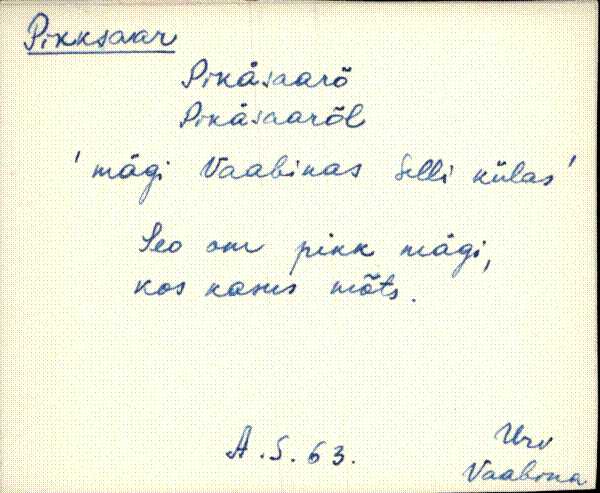 Pikksaar
Pikäsaarõ
Pikäsaarõl
' mägi Vaabinas Selli külas '
Seo om pikk mägi,
kos kasus mõts.
A. S. 63. Urv
Vaabina